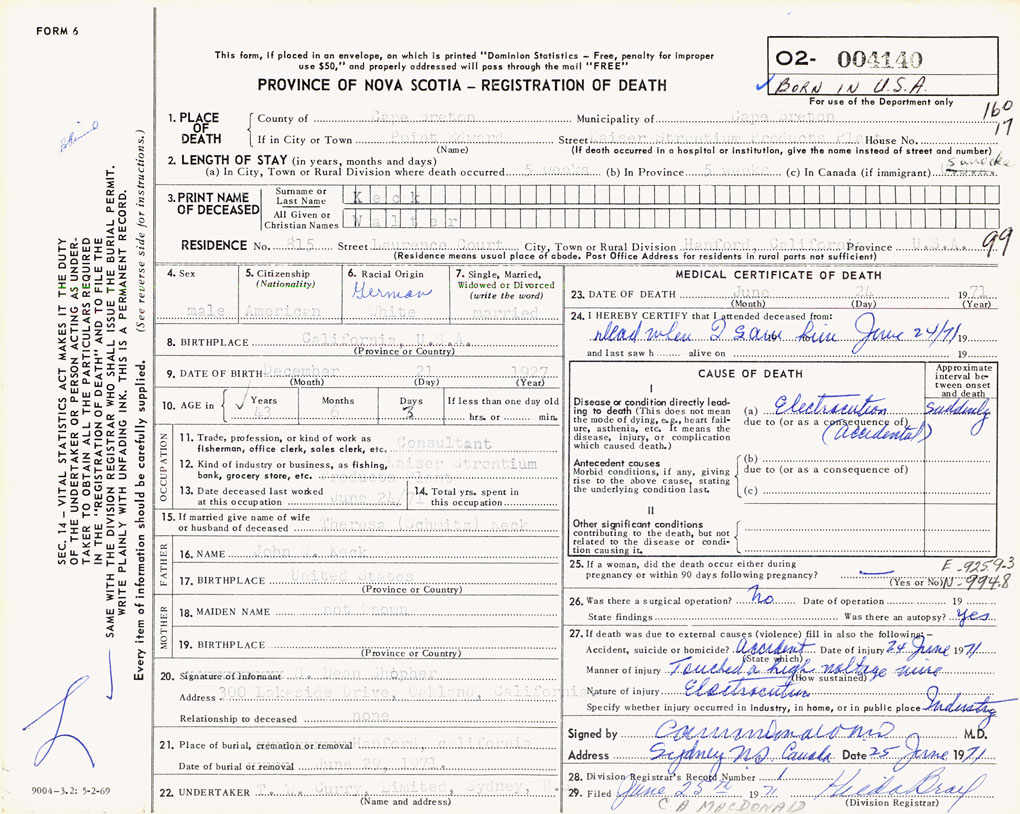 FORM 6
This form, if placed in an envelope, on which is printed "Dominion Statistics – Free, penalty for improper
use $50," and properly addressed will pass through the mail "FREE"
PROVINCE OF NOVA SCOTIA – REGISTRATION OF DEATH
O2- 004140
BORN IN U.S.A.
For use of the Department only
160
17
1. PLACE OF DEATH
County of Cape Breton Municipality of Cape Breton
If in City or Town Point Edward Street Kaiser Strontium Products Plant House No.
(Name) (If death occurred in a hospital or institution, give the name instead of street and number)
2. LENGTH OF STAY (in years, months and days)
(a) In City, Town or Rural Division where death occurred 5 weeks (b) In Province 5 weeks (c) In Canada (if immigrant) 5 weeks
3. PRINT NAME OF DECEASED
Surname or Last Name Keck
All Given or Christian Names Walter
RESIDENCE No. 815 Street Laurence Court City, Town or Rural Division Hanford, California Province U.S.A. 99
(Residence means usual place of abode. Post Office Address for residents in rural parts not sufficient)
4. Sex
male
5. Citizenship
(Nationality)
American
6. Racial Origin
German
White
7. Single, Married,
Widowed or Divorced
(write the word)
married
8. BIRTHPLACE California, U.S.A.
(Province or Country)
9. DATE OF BIRTH December 21 1927
(Month) (Day) (Year)
10. AGE in
Years Months Days If less than one day old
43 6 3 hrs. or min.
OCCUPATION
11. Trade, profession, or kind of work as
fisherman, office clerk, sales clerk, etc. Consultant
12. Kind of industry or business, as fishing,
bank, grocery store, etc. Kaiser Strontium
Products Plant
13. Date deceased last worked
at this occupation June 24/71
14. Total yrs. spent in
this occupation
15. If married give name of wife
or husband of deceased Theresa (Schmitz) Keck
FATHER
16. NAME John W. Keck
17. BIRTHPLACE United States
(Province or Country)
MOTHER
18. MAIDEN NAME not known
19. BIRTHPLACE
(Province or Country)
20. Signature of Informant
Address 300 Lakeside Drive, Oakland, California
Relationship to deceased none
21. Place of burial, cremation or removal Hanford California
Date of burial or removal June 29, 1971.
22. UNDERTAKER T. W. Curry, Limited, Sydney, N.
(Name and address)
MEDICAL CERTIFICATE OF DEATH
23. DATE OF DEATH June 24 1971
(Month) (Day) (Year)
24. I HEREBY CERTIFY that I attended deceased from:
Dead when I saw him June 24/71 19
and last saw h alive on 19
CAUSE OF DEATH
Approximate interval between onset and death
I
Disease or condition directly leading to death (This does not mean the mode of dying, e.g., heart failure, asthenia, etc. It means the disease, injury, or complication which caused death.)
(a) Electrocution Suddenly
due to (or as a consequence of)
(Accidental)
Antecedent causes
Morbid conditions, if any, giving rise to the above cause, stating the underlying condition last.
(b)
due to (or as a consequence of)
(c)
II
Other significant conditions
contributing to the death, but not related to the disease or condition causing it.
25. If a woman, did the death occur either during
pregnancy or within 90 days following pregnancy?
(Yes or No)
E-9259-3
N-994.8
26. Was there a surgical operation? No Date of operation 19
State findings Was there an autopsy? Yes
27. If death was due to external causes (violence) fill in also the following:–
Accident, suicide or homicide? Accident Date of injury 24 June 1971
(State which)
Manner of injury Touched a high voltage wire
(How sustained)
Nature of injury Electrocution
Specify whether injury occurred in Industry, in home, or in public place Industry
Signed by M.D.
Address Sydney NS. Canada Date 25 June 1971
28. Division Registrar's Record Number 1
29. Filed June 25th 1971 Hilda Bray
C A MACDONALD (Division Registrar)
SEC. 14 – VITAL STATISTICS ACT MAKES IT THE DUTY
OF THE UNDERTAKER OR PERSON ACTING AS UNDER-
TAKER TO OBTAIN ALL THE PARTICULARS REQUIRED
IN THE "REGISTRATION OF DEATH" AND TO FILE THE
SAME WITH THE DIVISION REGISTRAR WHO SHALL ISSUE THE BURIAL PERMIT.
WRITE PLAINLY WITH UNFADING INK. THIS IS A PERMANENT RECORD.
Every item of information should be carefully supplied. (See reverse side for instructions.)
9004-3.2: 5-2-69